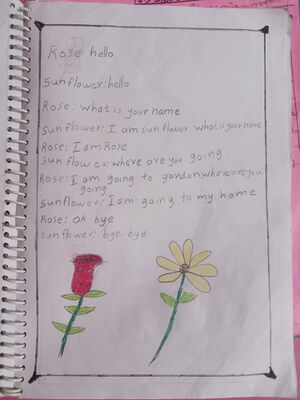 Rose: hello
Sunflower: hello
Rose: what is your name
Sunflower: I am sunflower what is your name
Rose: I am Rose
Sunflower: where are you going
Rose: I am going to garden where are you
going
Sunflower: I am going to my home
Rose: ok bye
sunflower: bye bye